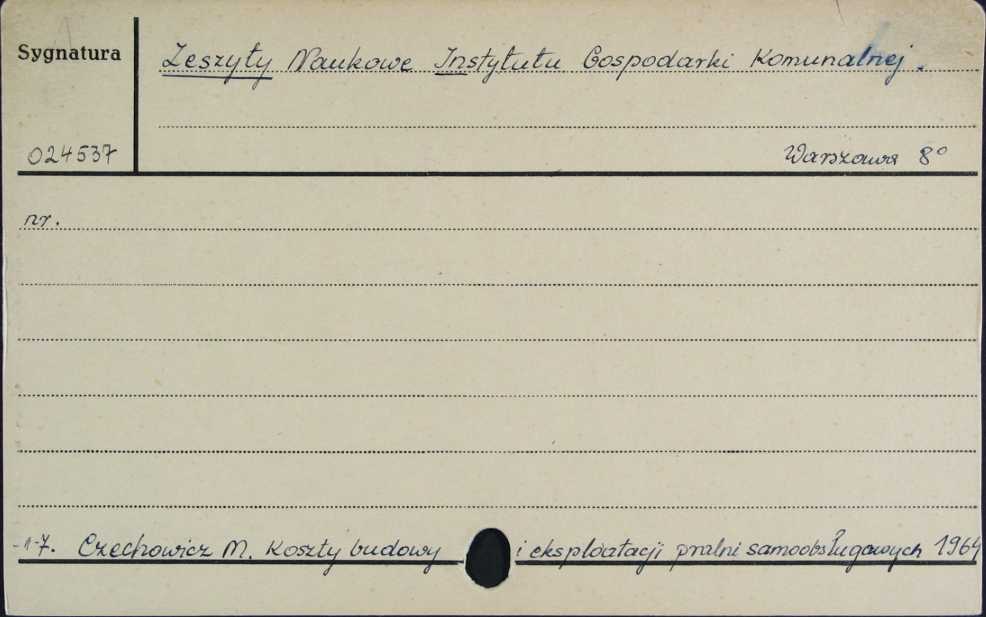 Sygnatura
Zeszyty Naukowe Instytutu Gospodarki Komunalnej.
024537
Warszawa 8°
nr.
-"-7. Czechowicz M. Koszty budowy i eksploatacji pralni samoobsługowych 1964